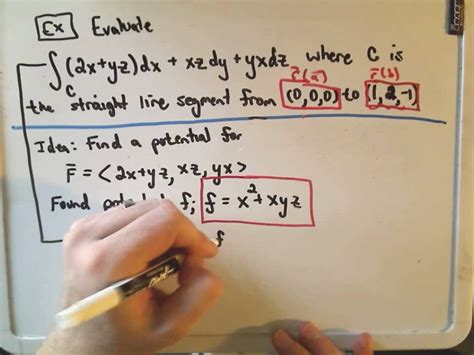 Ex Evaluate
∫_C (2x+yz)dx + xzdy + yxdz where C is
r̄(a) r̄(b)
the straight line segment from (0,0,0) to (1,2,-1)
Idea: Find a potential for
F̄ = <2x+yz, xz, yx>
Found f; f = x² + xyz
f